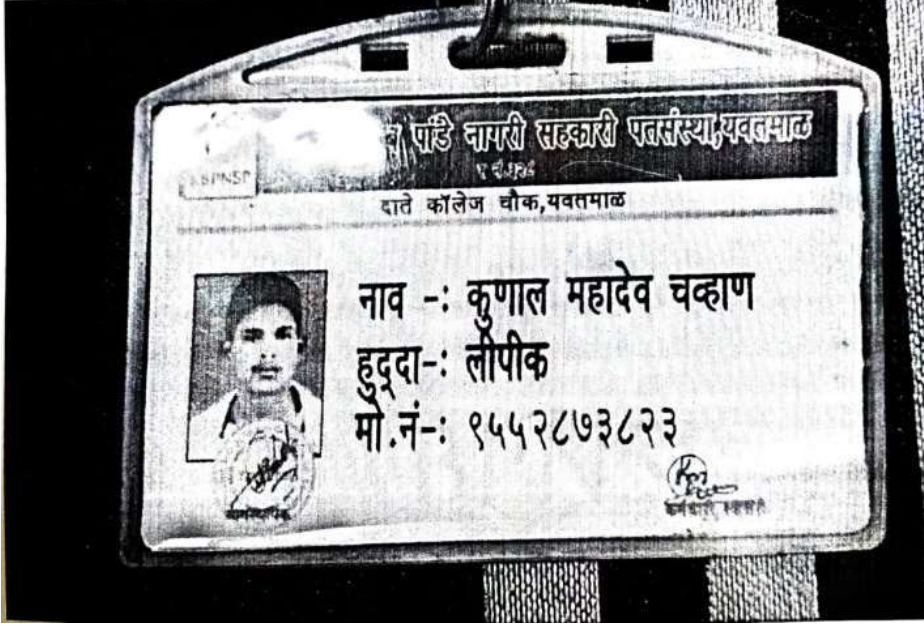 पांडे नागरी सहकारी पतसंस्था,यवतमाळ
दाते कॉलेज चौक,यवतमाळ
नाव -: कुणाल महादेव चव्हाण
हुद्दा-: लीपीक
मो.नं-: ९५५२८७३८२३